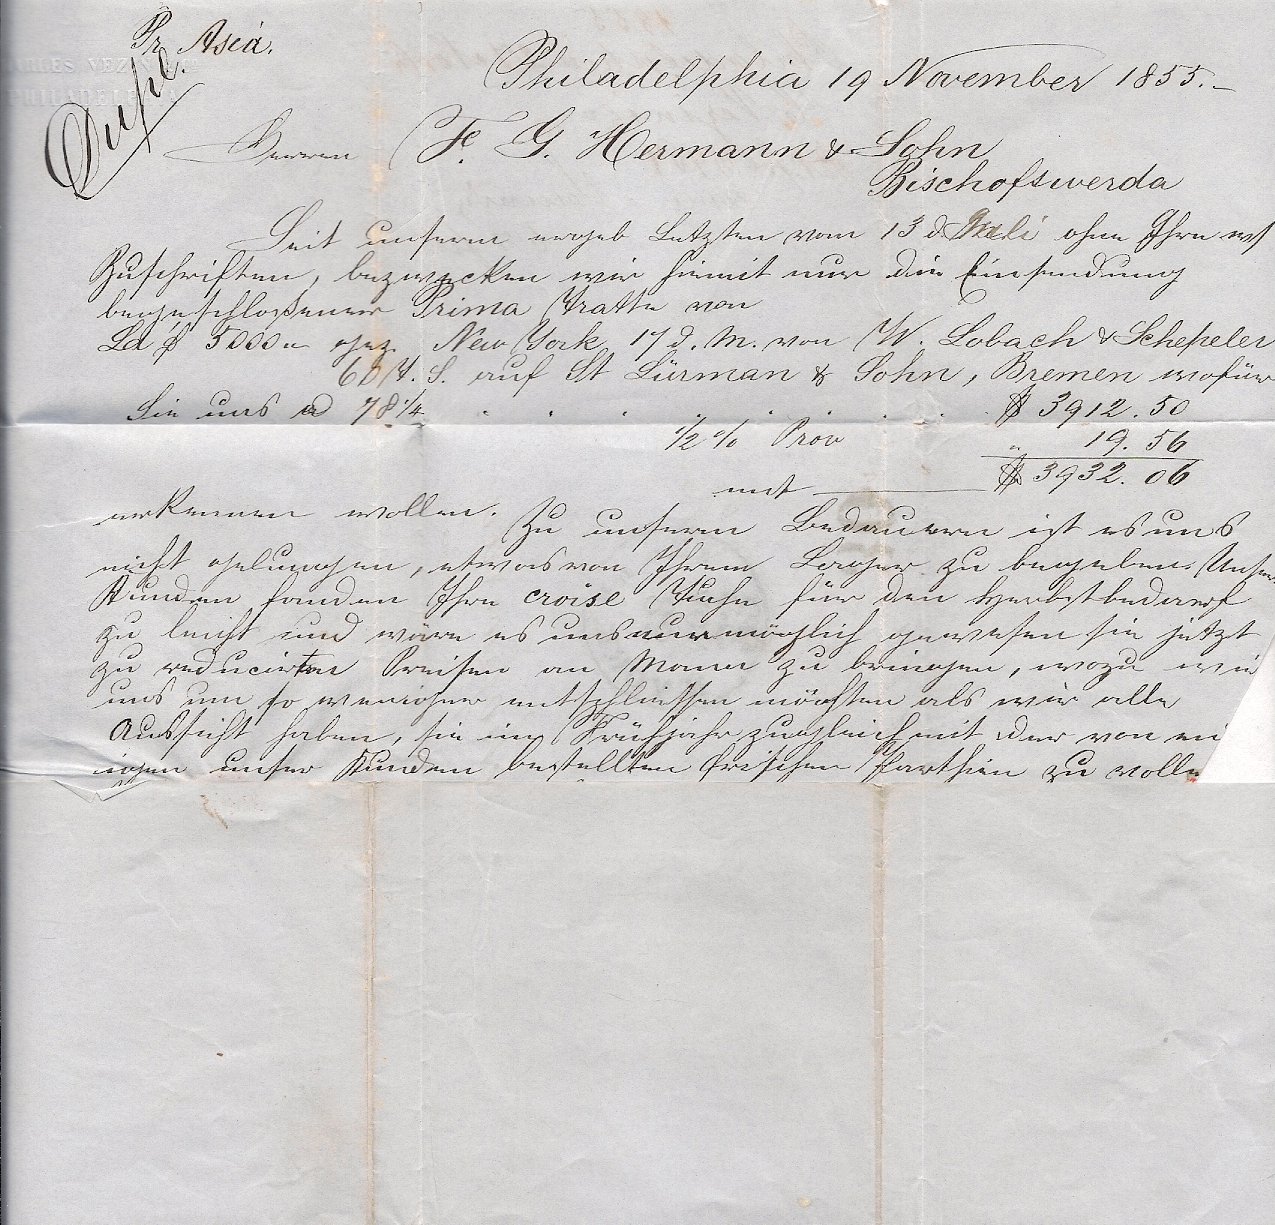 Pr. Asia.
CHARLES VEZIN & CO
PHILADELPHIA
Dupl.
Philadelphia 19 November 1855.-
Herren F. G. Hermann & Sohn
Bischofswerda
Seit unserm ergeb Letzten vom 13 d Juli ohne Ihre w/
Zuschriften, bezwecken wir hiemit nur die Einsendung
beigeschloßener Prima Tratte von
Ld'or 5000.- New York 17 d. M. von W. Lobach & Schepeler
60/t. S. auf St Lürman & Sohn, Bremen wofür
Sie uns a 78 1/4 $ 3912.50
1/2 % Prov " 19.56
mit $ 3932.06
erkennen wollen. Zu unserm Bedauern ist es uns
nicht gelungen, etwas von Ihrem Lager zu begeben. Unsere
Kunden fanden Ihre croisé Tuche für den Herbstbedarf
zu leicht und wäre es uns nur möglich gewesen sie jetzt
zu reducirten Preisen an Mann zu bringen, wozu wir
uns um so weniger entschliessen möchten als wir alle
Aussicht haben, sie im Frühjahr zugleich mit der von ei
nigen unser Kunden bestellten frischen Parthien zu volle